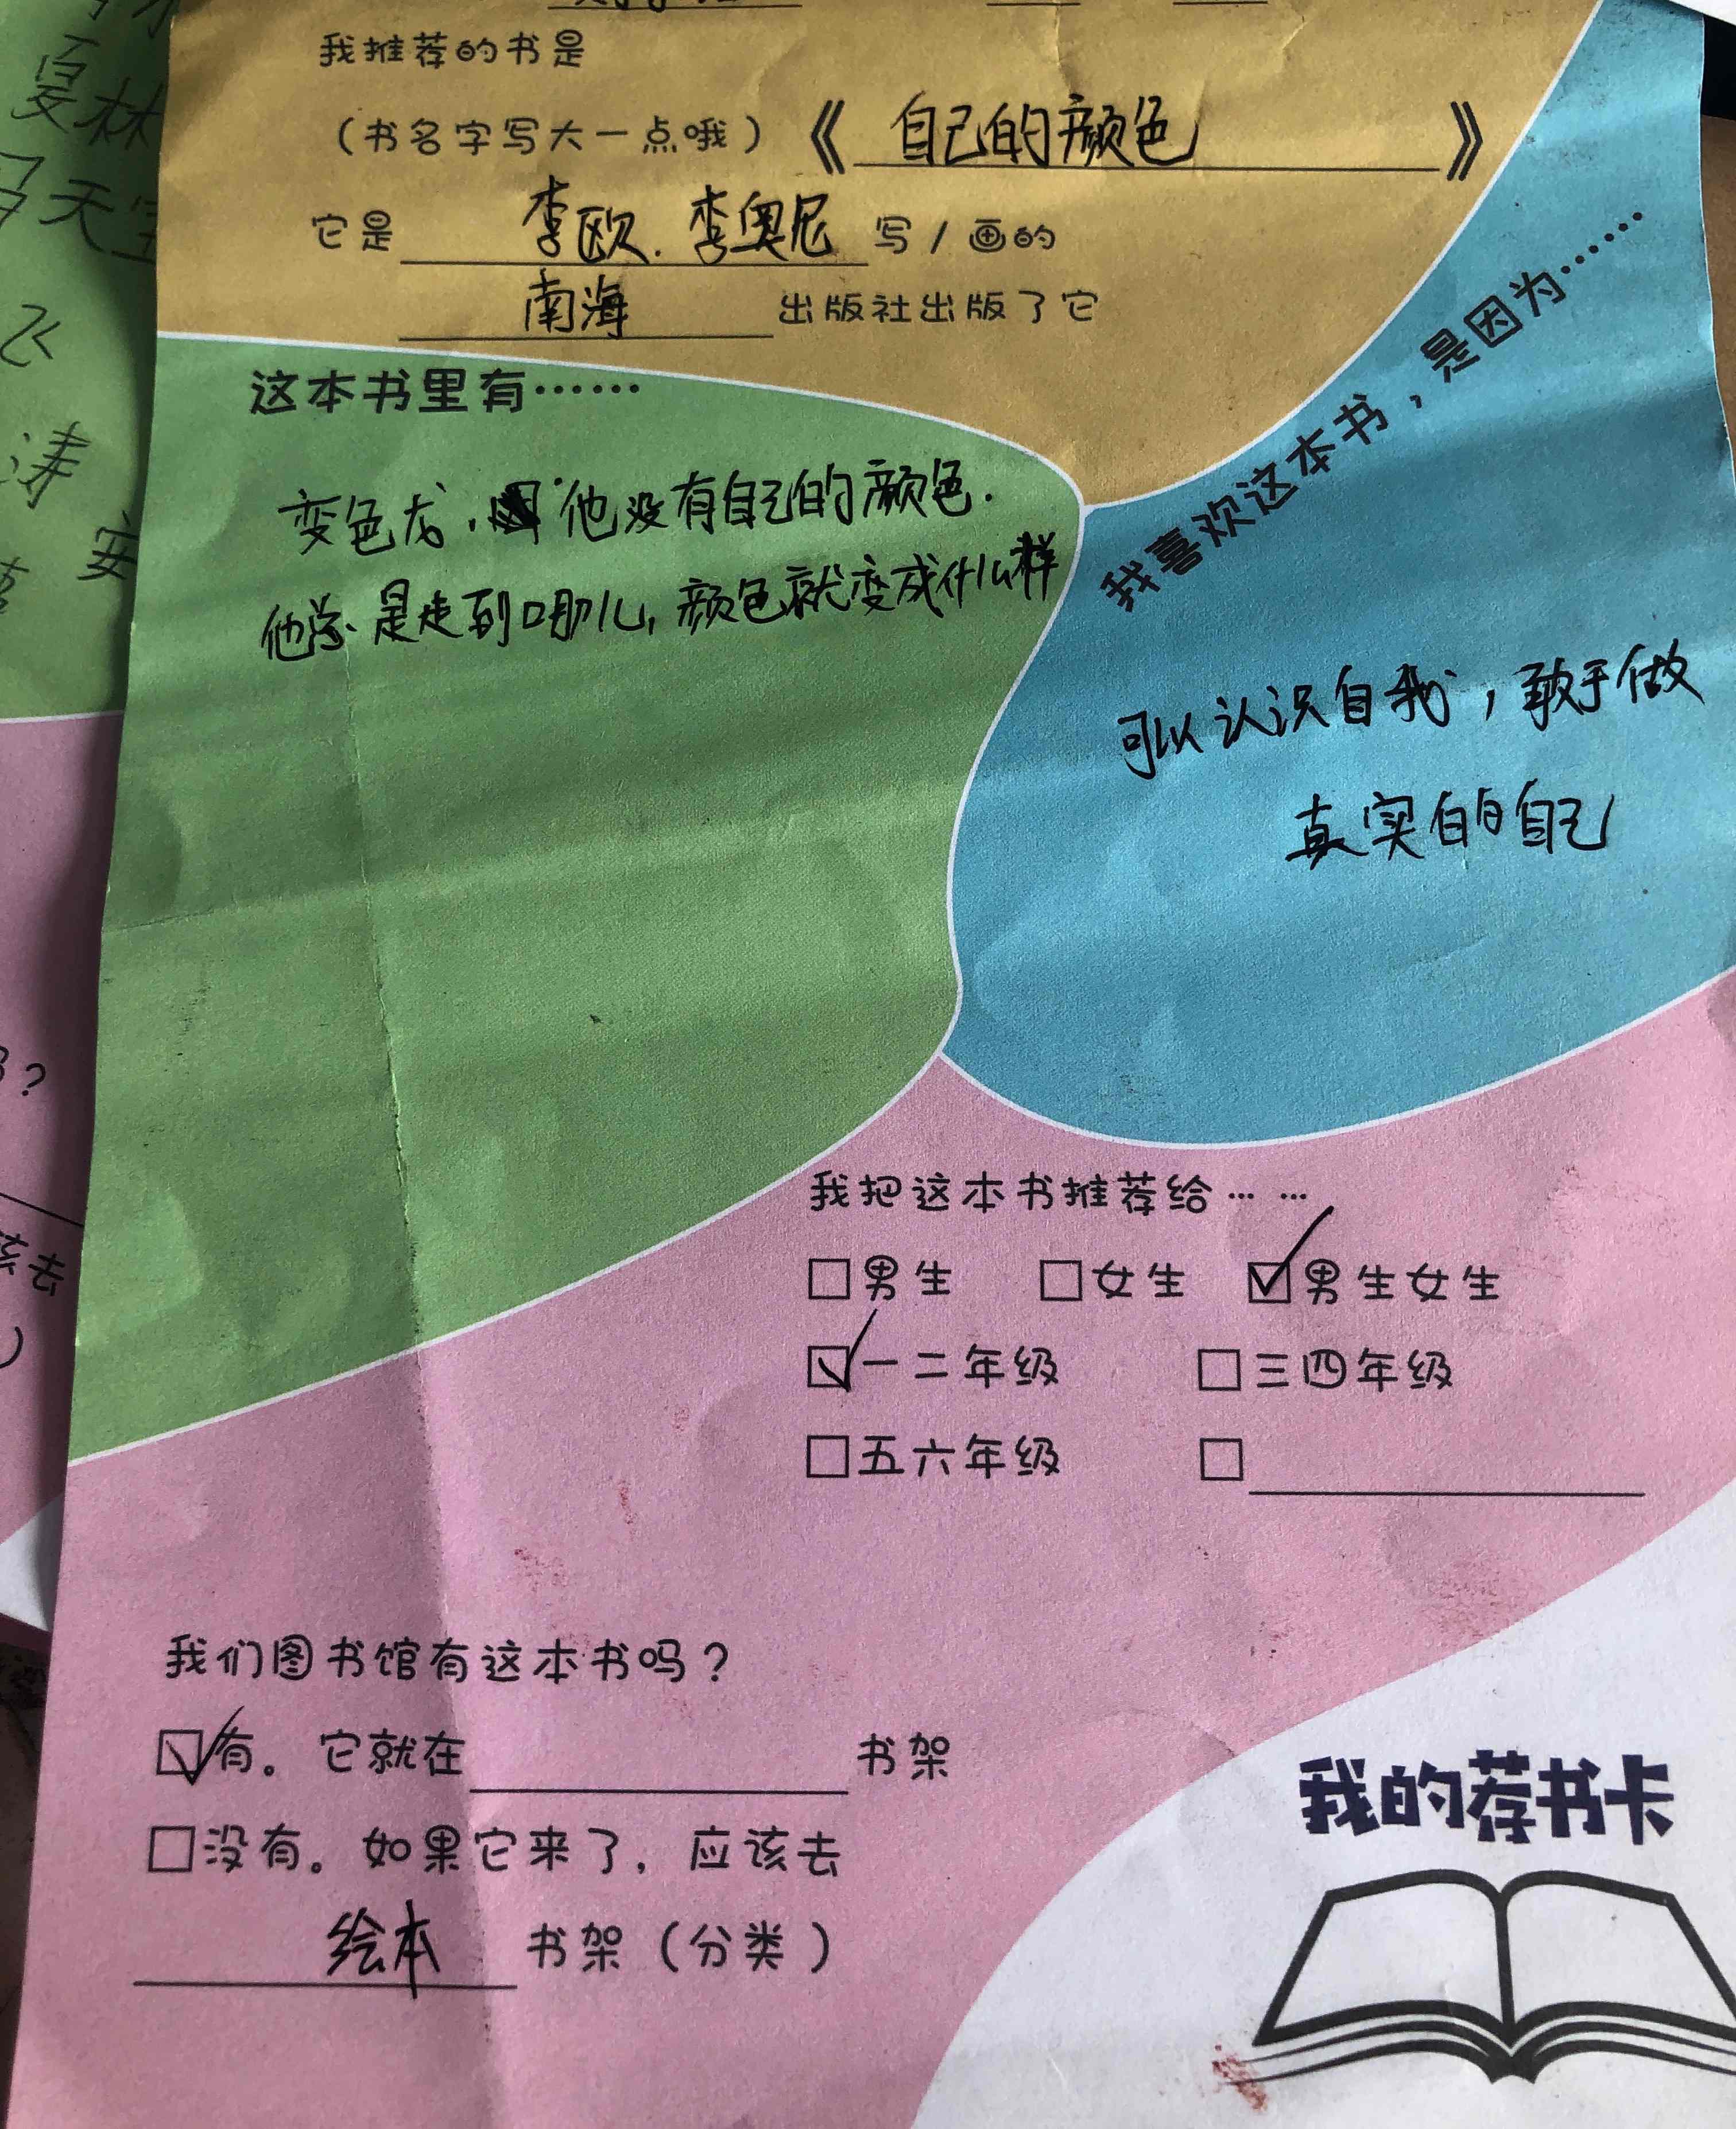 我推荐的书是
（书名字写大一点哦）《自己的颜色》
它是 李欧.李奥尼 写/画的
南海 出版社出版了它
这本书里有……
变色龙，他没有自己的颜色.
他总是走到哪儿，颜色就变成什么样
我喜欢这本书，是因为……
可以认识自我，敢于做
真实的自己
我把这本书推荐给… …
□男生 □女生 ☑男生女生
☑一二年级 □三四年级
□五六年级 □
我们图书馆有这本书吗？
☑有。它就在 书架
□没有。如果它来了，应该去
绘本 书架（分类）
我的荐书卡
夏林
天
飞
涛
安
？
该去
）